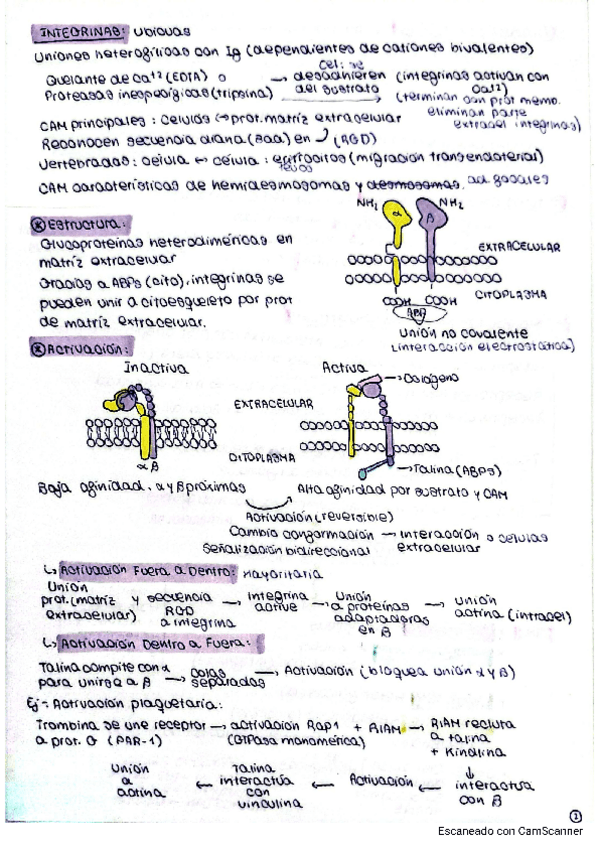 INTEGRINAS: Ubicuas
Uniones heterofílicas con Ig (dependientes de cationes bivalentes)
Quelante de Ca+2 (EDTA) o → cel. se desadhieren (integrinas activan con Ca+2)
Proteasas inespecíficas (tripsina) del sustrato → (terminan con prot memb. eliminan parte extracel integrinas)
CAM principales: Células → prot. matriz extracelular
Reconocen secuencia diana (3aa) en (RGD)
Vertebrados: célula ↔ célula: (migración transendotelial)
CAM características de hemidesmosomas y desmosomas. ad focales
* Estructura:
Glucoproteínas heterodiméricas en
matriz extracelular
Gracias a ABPs (cito), integrinas se
pueden unir a citoesqueleto por prot
de matriz extracelular.
NH2 α β NH2
EXTRACELULAR
CITOPLASMA
COOH COOH
ABP
Unión no covalente
(interacción electrostática)
* Activación:
Inactiva
Activa
→ Colágeno
EXTRACELULAR
CITOPLASMA
α β
→ Talina (ABPs)
Baja afinidad. α y β próximas
Alta afinidad por sustrato y CAM
Activación (reversible)
Cambio conformación → interacción o células
Señalización bidireccional extracelular
↳ Activación Fuera a Dentro: Mayoritaria
Unión prot. (matriz extracelular) y secuencia RGD a integrina → integrina active → Unión a proteínas adaptadoras en β → unión actina (intracel)
↳ Activación Dentro a Fuera:
Talina compite con α para unirse a β → colas separadas → Activación (bloquea unión α y β)
Ej = Activación plaquetaria:
Trombina se une receptor → activación Rap1 + RIAM → RIAM recluta
a prot. G (PAR-1) (GTPasa monomérica) a talina
+ Kindlina
↓
interactúa con β ← Activación ← Talina interactúa con vinculina ← Unión a actina
1
Escaneado con CamScanner